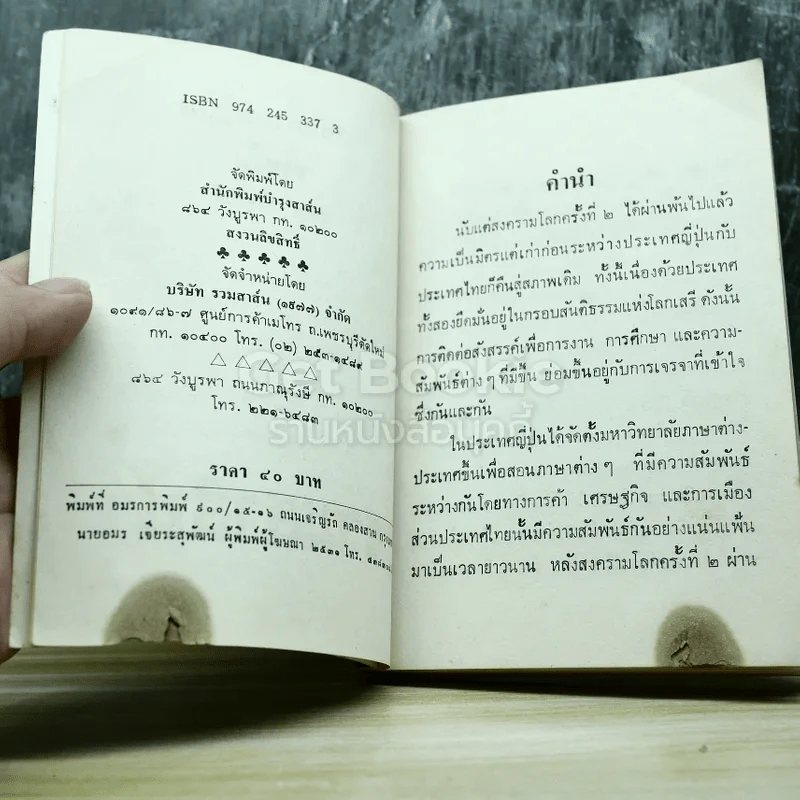 ISBN 974 245 337 3
จัดพิมพ์โดย
สำนักพิมพ์บำรุงสาส์น
๘๖๔ วังบูรพา กท. ๑๐๒๐๐
สงวนลิขสิทธิ์
♣ ♣ ♣ ♣ ♣
จัดจำหน่ายโดย
บริษัท รวมสาส์น (๑๙๗๗) จำกัด
๑๐๙๑/๘๖-๗ ศูนย์การค้าเมโทร ถ.เพชรบุรีตัดใหม่
กท. ๑๐๔๐๐ โทร. (๐๒) ๒๕๓-๑๔๘๙
△ △ △ △ △
๘๖๔ วังบูรพา ถนนภาณุรังษี กท. ๑๐๒๐๐
โทร. ๒๒๑-๖๔๘๓
ราคา ๔๐ บาท
พิมพ์ที่ อมรการพิมพ์ ๙๐๐/๑๕-๑๖ ถนนเจริญรัถ คลองสาน
นายอมร เจียระสุพัฒน์ ผู้พิมพ์ผู้โฆษณา ๒๕๓๑ โทร.
คำนำ
นับแต่สงครามโลกครั้งที่ ๒ ได้ผ่านพ้นไปแล้ว
ความเป็นมิตรแต่เก่าก่อนระหว่างประเทศญี่ปุ่นกับ
ประเทศไทยก็คืนสู่สภาพเดิม ทั้งนี้เนื่องด้วยประเทศ
ทั้งสองยึดมั่นอยู่ในกรอบสันติธรรมแห่งโลกเสรี ดังนั้น
การติดต่อสังสรรค์เพื่อการงาน การศึกษา และความ-
สัมพันธ์ต่าง ๆ ที่มีขึ้น ย่อมขึ้นอยู่กับการเจรจาที่เข้าใจ
ซึ่งกันและกัน
ในประเทศญี่ปุ่นได้จัดตั้งมหาวิทยาลัยภาษาต่าง-
ประเทศขึ้นเพื่อสอนภาษาต่าง ๆ ที่มีความสัมพันธ์
ระหว่างกันโดยทางการค้า เศรษฐกิจ และการเมือง
ส่วนประเทศไทยนั้นมีความสัมพันธ์กันอย่างแน่นแฟ้น
มาเป็นเวลายาวนาน หลังสงครามโลกครั้งที่ ๒ ผ่าน
Get Bookie
ร้านหนังสือบุ๊คกี้